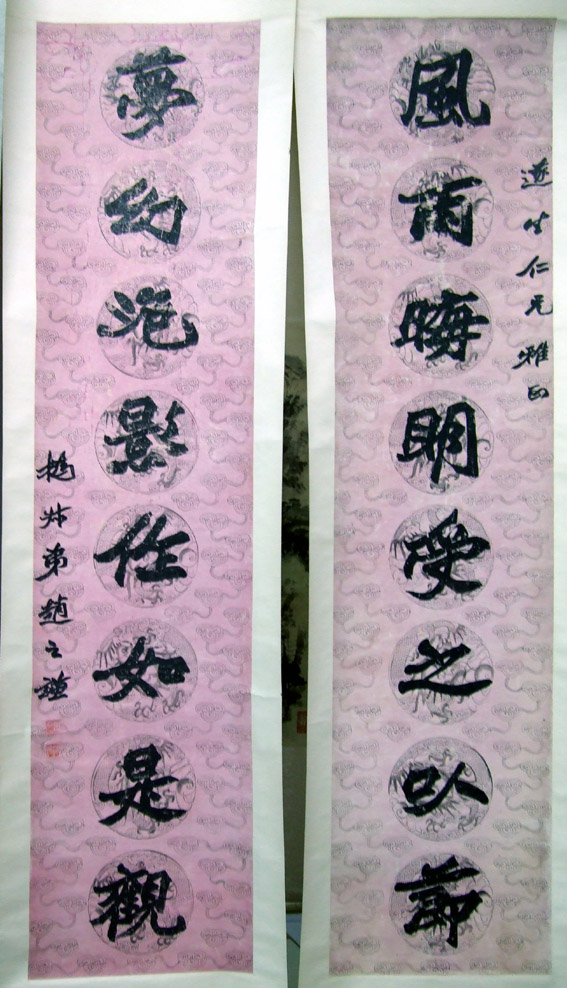 遂生仁兄雅正
風雨晦明受之以節
夢幻泡影作如是觀
撝叔弟趙之謙